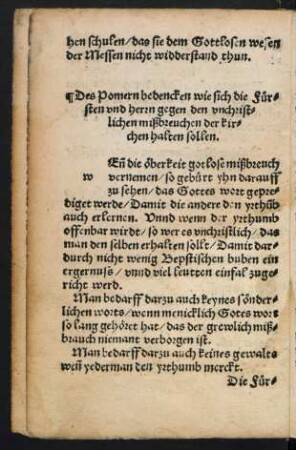 hen schulen/das sie dem Gottlosen wesen
der Messen nicht widderstand thun.
¶Des Pomern bedencken wie sich die Für-
sten vnd herrn gegen den vnchrist-
lichen mißbreuchen der kir-
chen halten sollen.
Eñ die öberkeit gotlose mißbreuch
w vernemen/so gebürt yhn darauff
zu sehen/das Gottes wort gepre-
diget werde/Damit die andere den yrthũb
auch erlernen. Vnnd wenn der yrthumb
offenbar wirdt/so wer es vnchristlich/das
man den selben erhalten solt/Damit dar-
durch nicht wenig Bepstischen buben ein
ergernuß/vnnd viel leutten einfal zuge-
richt werd.
Man bedarff darzu auch keynes sönder-
lichen worts/wenn menicklich Gotes wort
so lang gehöret hat/das der grewlich miß-
brauch niemant verborgen ist.
Man bedarff darzu auch keines gewalts
weñ yederman den yrthumb merckt.
Die Für-